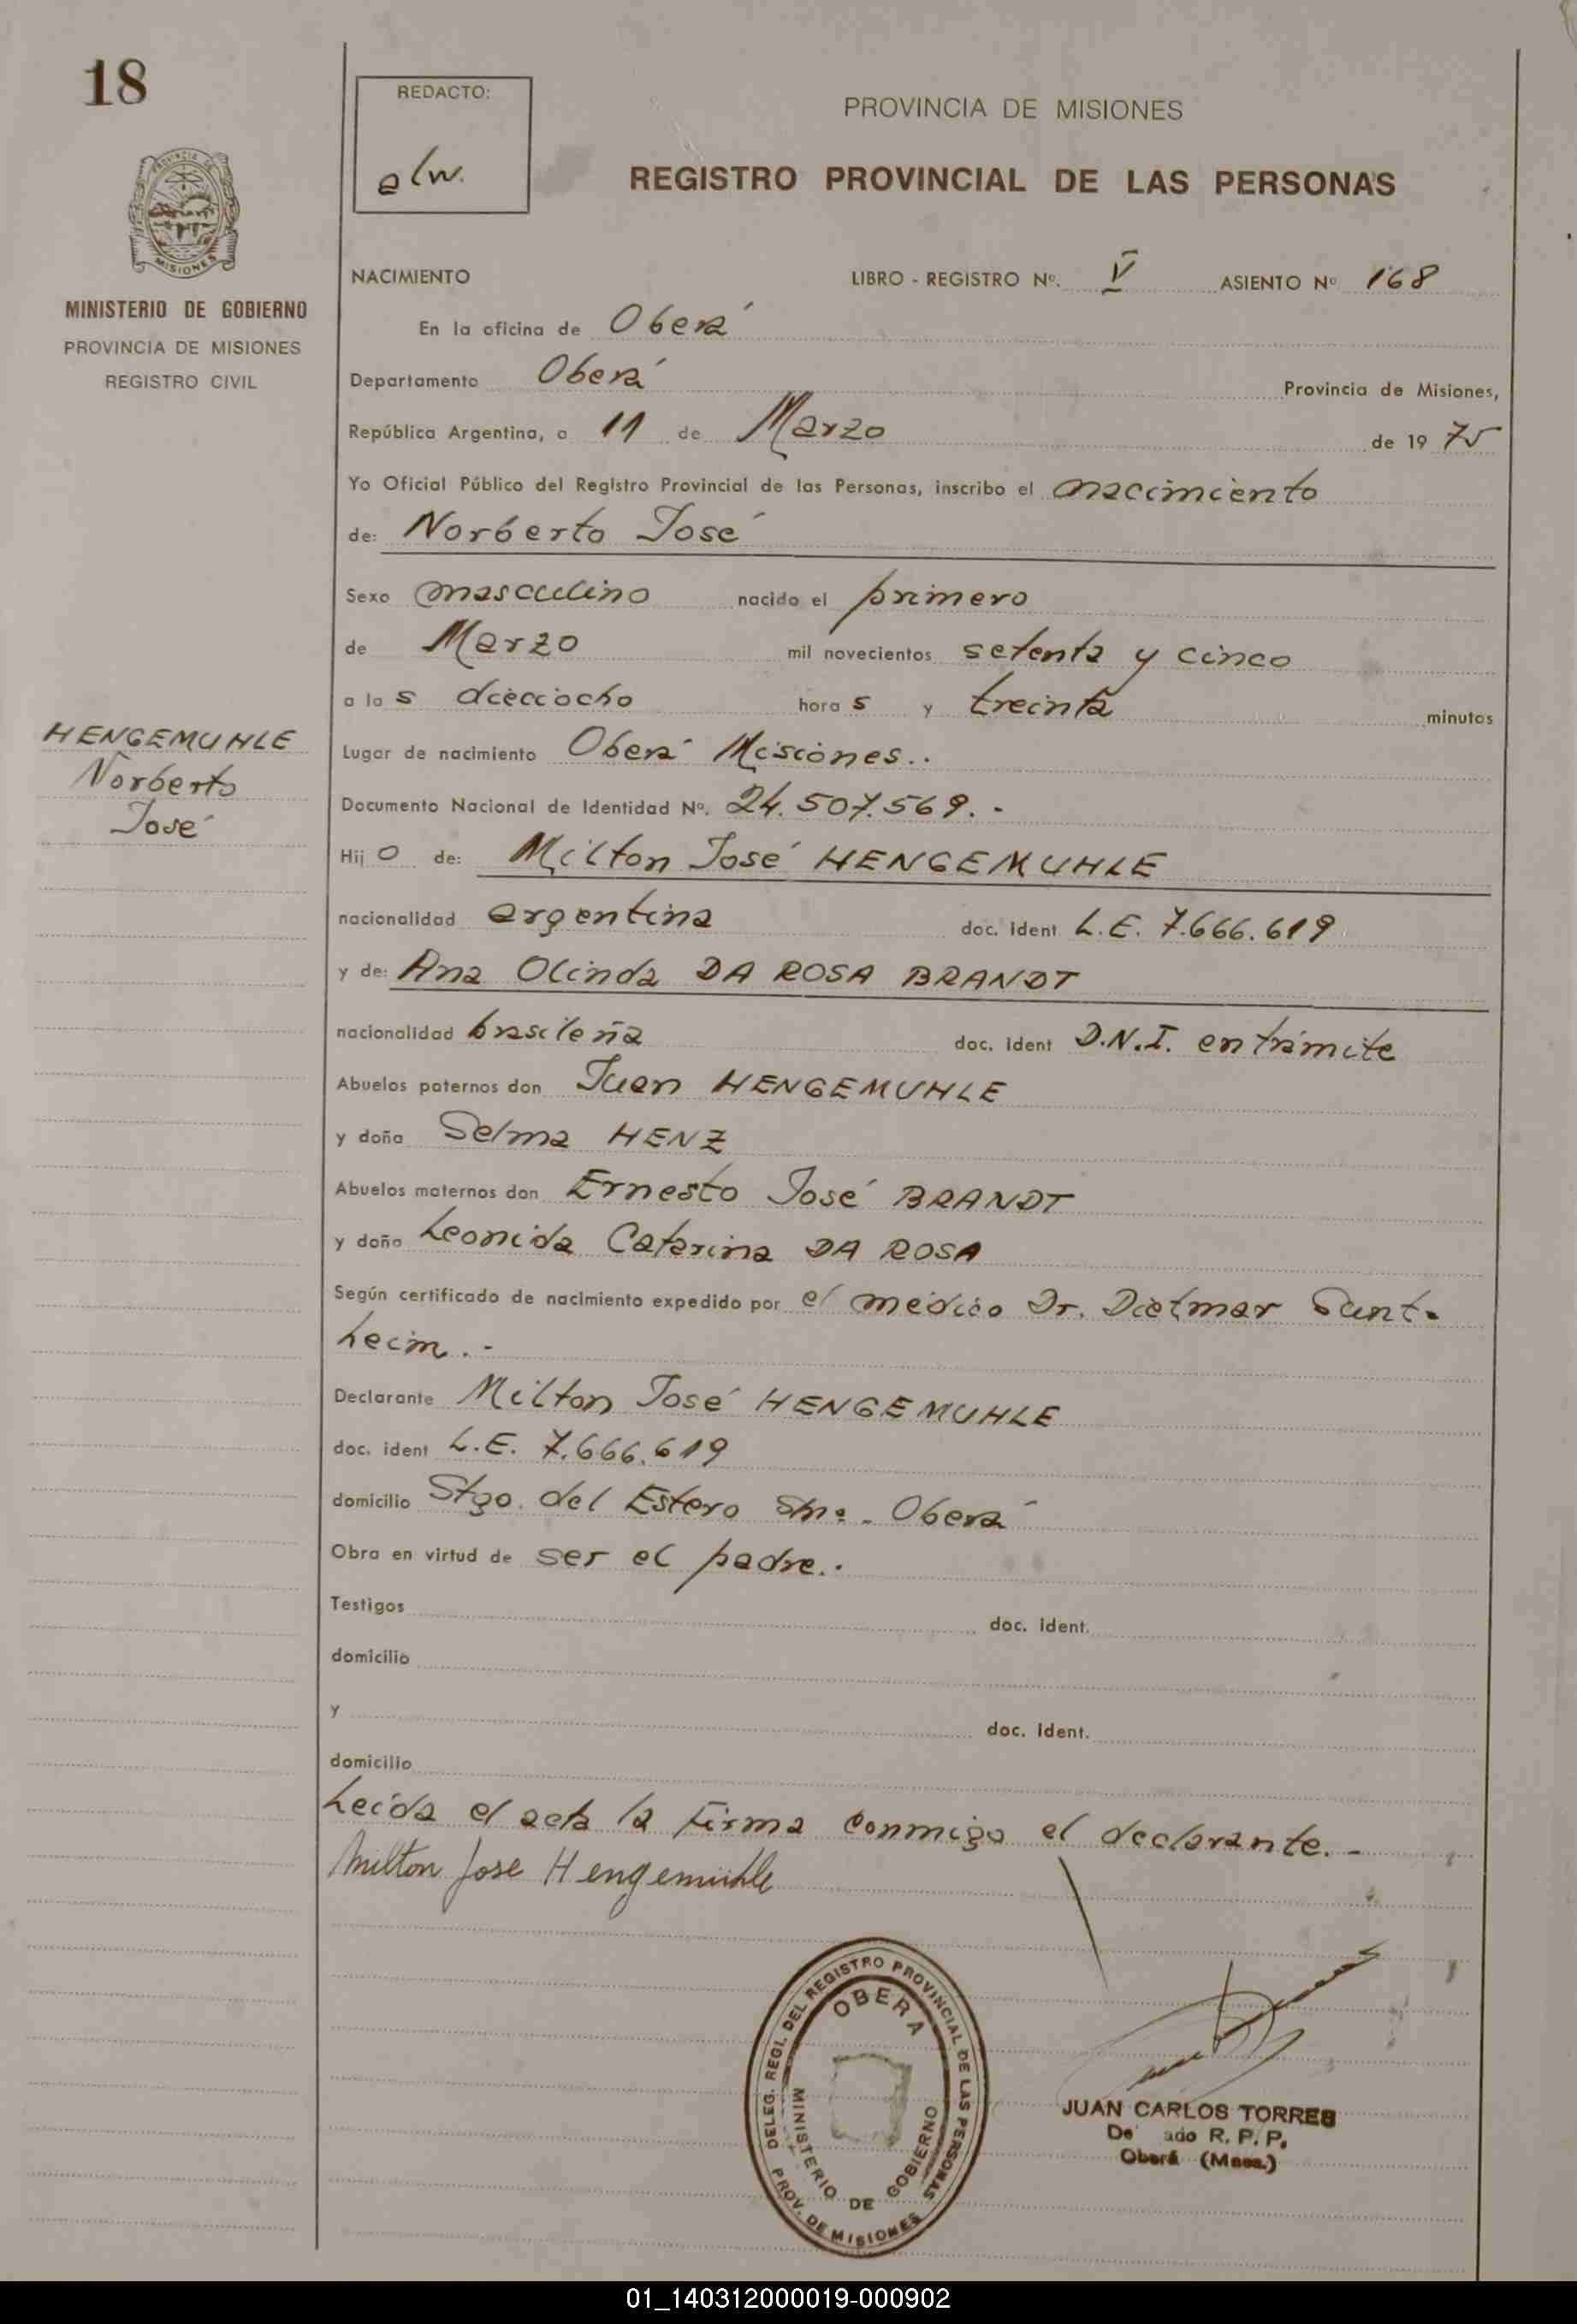 18
REDACTO:
PROVINCIA DE MISIONES
REGISTRO PROVINCIAL DE LAS PERSONAS
PROVINCIA DE
MISIONES
MINISTERIO DE GOBIERNO
PROVINCIA DE MISIONES
REGISTRO CIVIL
NACIMIENTO LIBRO - REGISTRO Nº. V ASIENTO Nº 168
En la oficina de Oberá
Departamento Oberá Provincia de Misiones,
República Argentina, a 11 de Marzo de 1975
Yo Oficial Público del Registro Provincial de las Personas, inscribo el nacimiento
de: Norberto José
Sexo masculino nacido el primero
de Marzo mil novecientos setenta y cinco
a las dieciocho horas y treinta minutos
HENGEMUHLE
Norberto
José
Lugar de nacimiento Oberá Misiones..
Documento Nacional de Identidad Nº. 24.507.569.-
Hijo de: Milton José HENGEMUHLE
nacionalidad argentina doc. ident L.E. 7.666.619
y de: Ana Olinda DA ROSA BRANDT
nacionalidad brasileña doc. ident D.N.I. en trámite
Abuelos paternos don Juan HENGEMUHLE
y doña Selma HENZ
Abuelos maternos don Ernesto José BRANDT
y doña Leonida Catarina DA ROSA
Según certificado de nacimiento expedido por el médico Dr. Dietmar Sunt-
heim.-
Declarante Milton José HENGEMUHLE
doc. ident L.E. 7.666.619
domicilio Stgo. del Estero S/nº.- Oberá
Obra en virtud de ser el padre..
Testigos doc. ident.
domicilio
y doc. ident.
domicilio
Leída el acta la firma conmigo el declarante.-
Milton Jose Hengemühle
DELEG. REGI. DEL REGISTRO PROVINCIAL DE LAS PERSONAS
OBERA
MINISTERIO DE GOBIERNO
PROV. DE MISIONES
JUAN CARLOS TORRES
De ado R. P. P.
Oberá (Mnes.)
01_140312000019-000902